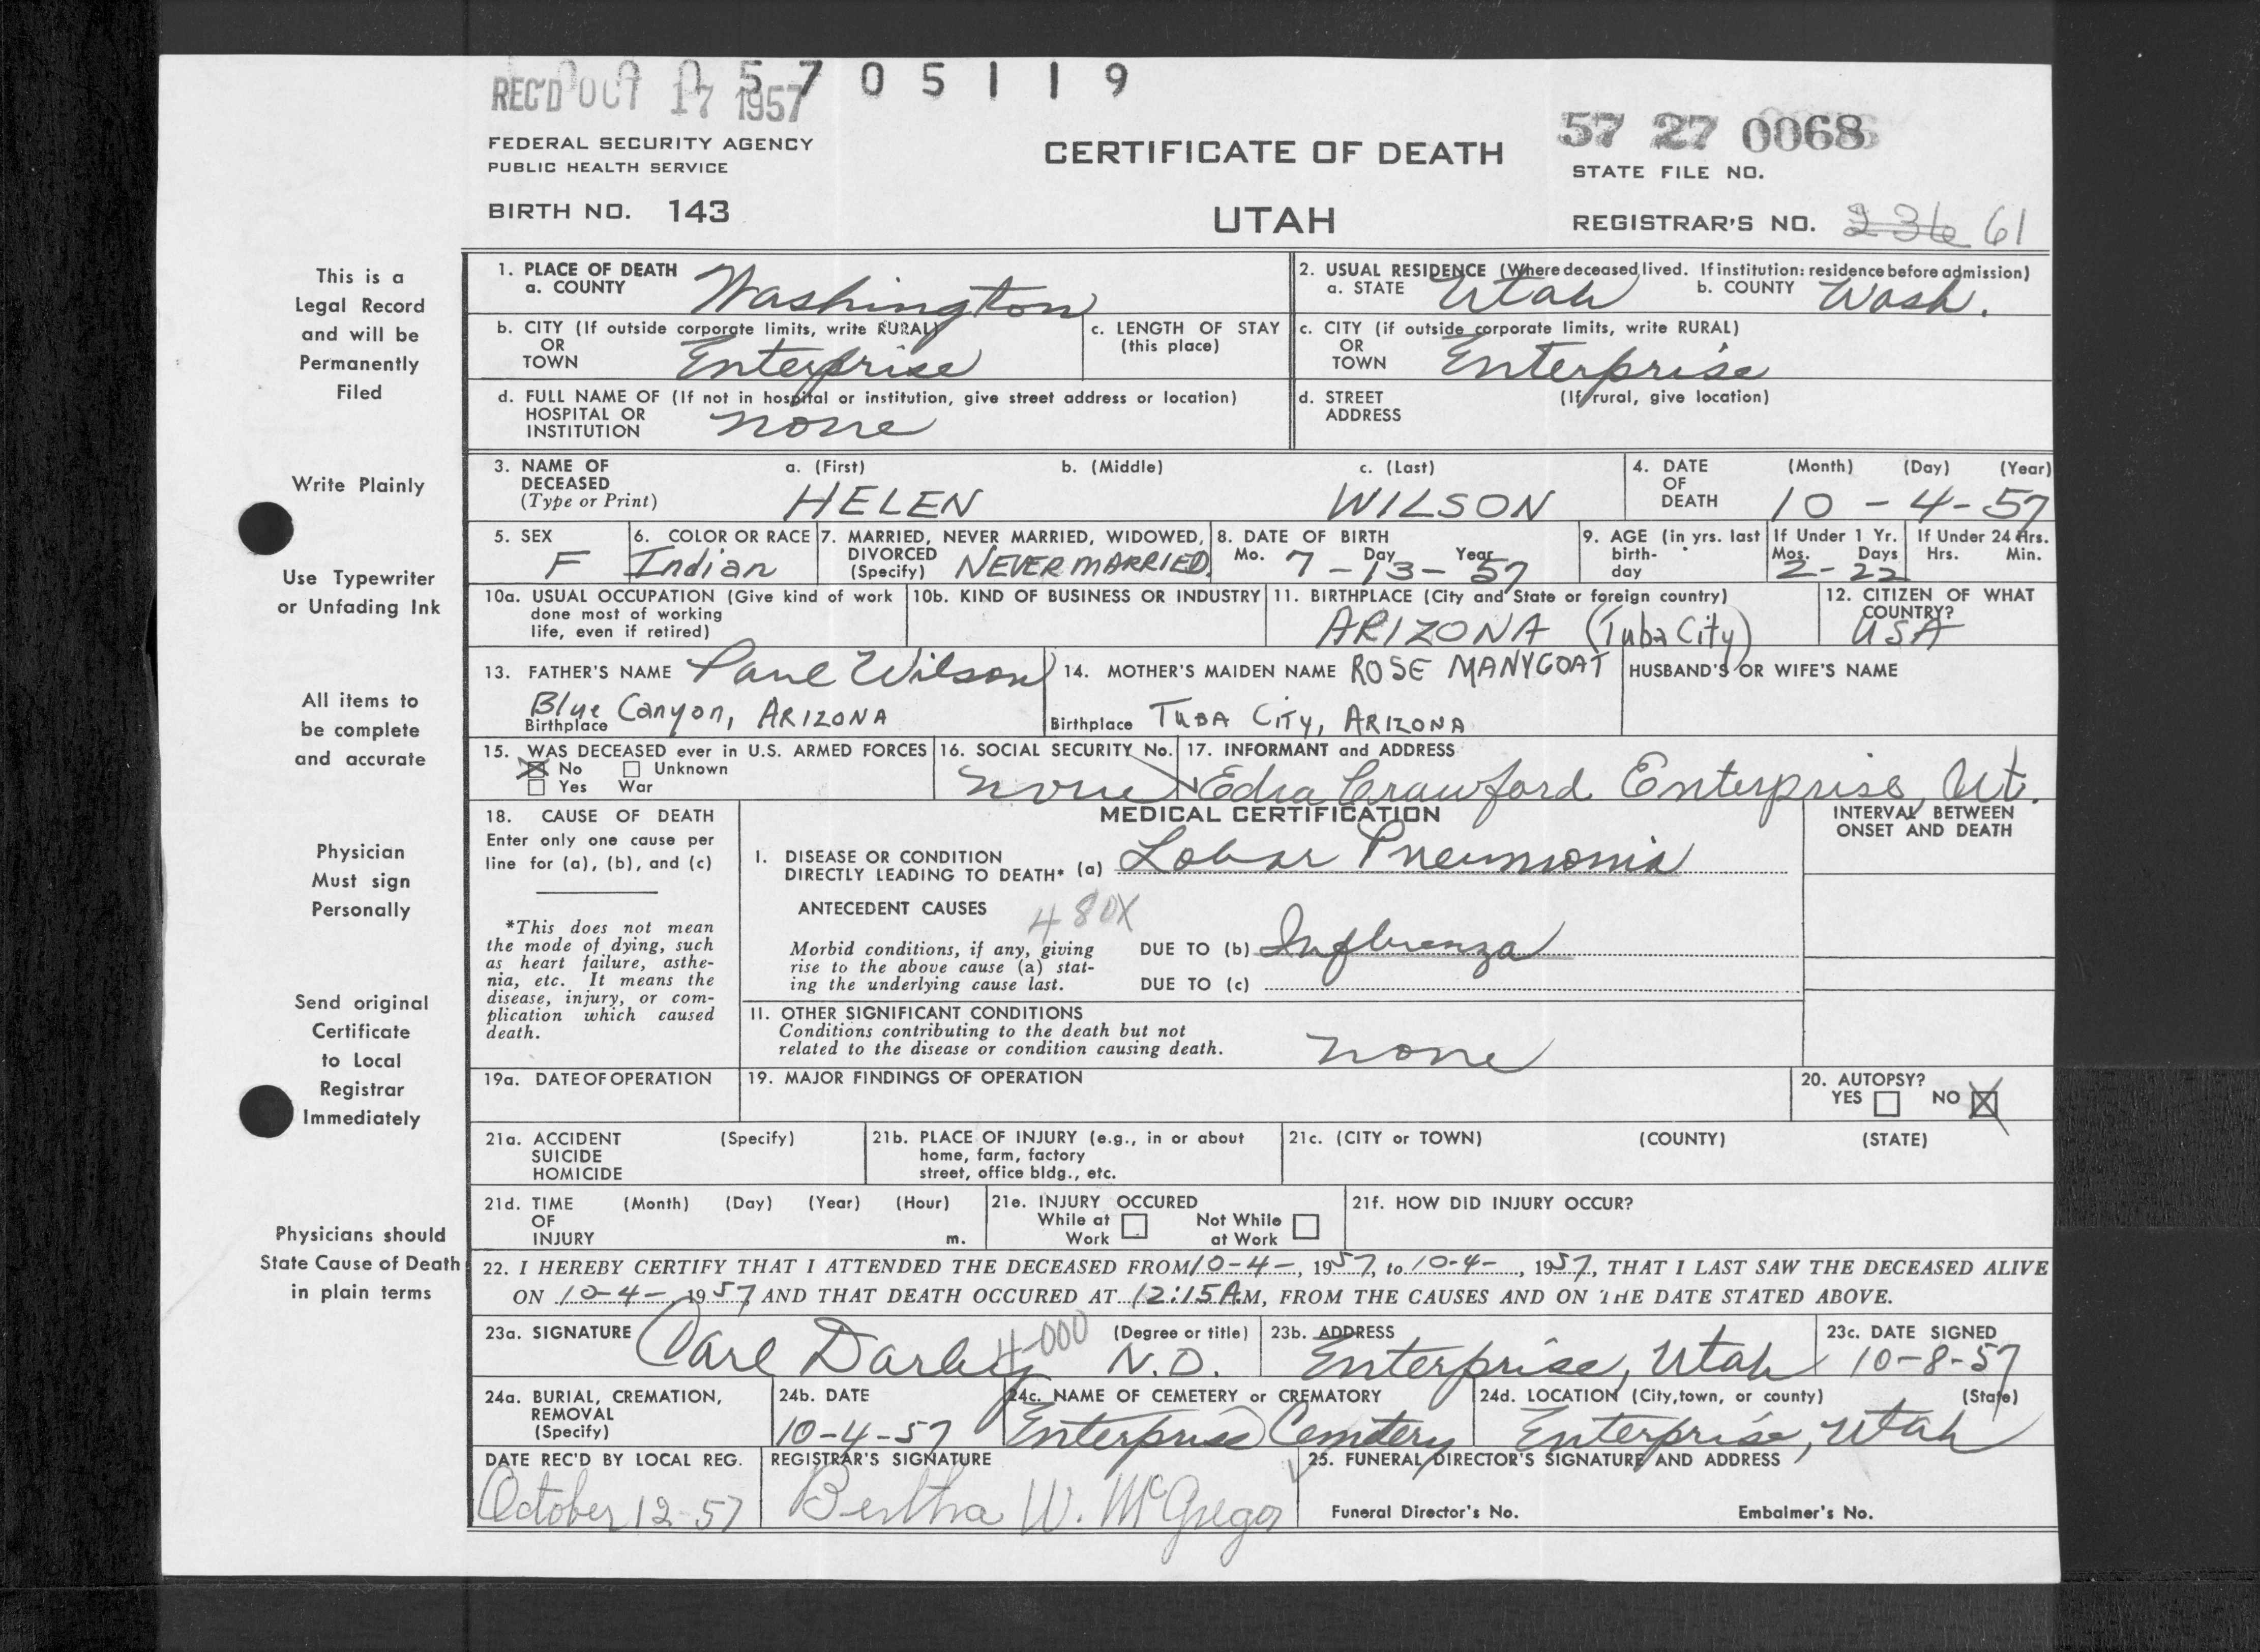 REC'D OCT 17 1957
5 7 0 5 1 1 9
FEDERAL SECURITY AGENCY
PUBLIC HEALTH SERVICE
BIRTH NO. 143
CERTIFICATE OF DEATH
UTAH
57 27 0068
STATE FILE NO.
REGISTRAR'S NO. 236 61
This is a
Legal Record
and will be
Permanently
Filed
Write Plainly
Use Typewriter
or Unfading Ink
All items to
be complete
and accurate
Physician
Must sign
Personally
Send original
Certificate
to Local
Registrar
Immediately
Physicians should
State Cause of Death
in plain terms
1. PLACE OF DEATH
a. COUNTY Washington
2. USUAL RESIDENCE (Where deceased lived. If institution: residence before admission)
a. STATE Utah b. COUNTY Wash.
b. CITY (If outside corporate limits, write RURAL)
OR
TOWN Enterprise
c. LENGTH OF STAY
(this place)
c. CITY (if outside corporate limits, write RURAL)
OR
TOWN Enterprise
d. FULL NAME OF (If not in hospital or institution, give street address or location)
HOSPITAL OR
INSTITUTION none
d. STREET (If rural, give location)
ADDRESS
3. NAME OF DECEASED
(Type or Print)
a. (First) b. (Middle) c. (Last)
HELEN WILSON
4. DATE OF DEATH
(Month) (Day) (Year)
10 - 4 - 57
5. SEX
F
6. COLOR OR RACE
Indian
7. MARRIED, NEVER MARRIED, WIDOWED,
DIVORCED
(Specify) NEVER MARRIED
8. DATE OF BIRTH
Mo. Day Year
7 - 13 - 57
9. AGE (in yrs. last
birth-
day
If Under 1 Yr.
Mos. Days
2 - 22
If Under 24 Hrs.
Hrs. Min.
10a. USUAL OCCUPATION (Give kind of work
done most of working
life, even if retired)
10b. KIND OF BUSINESS OR INDUSTRY
11. BIRTHPLACE (City and State or foreign country)
ARIZONA (Tuba City)
12. CITIZEN OF WHAT
COUNTRY?
USA
13. FATHER'S NAME Paul Wilson
Birthplace Blue Canyon, ARIZONA
14. MOTHER'S MAIDEN NAME ROSE MANYGOAT
Birthplace TUBA CITY, ARIZONA
HUSBAND'S OR WIFE'S NAME
15. WAS DECEASED ever in U.S. ARMED FORCES
No Unknown
Yes War
16. SOCIAL SECURITY No.
none
17. INFORMANT and ADDRESS
Edna Crawford Enterprise, Ut.
18. CAUSE OF DEATH
Enter only one cause per
line for (a), (b), and (c)
*This does not mean
the mode of dying, such
as heart failure, asthe-
nia, etc. It means the
disease, injury, or com-
plication which caused
death.
MEDICAL CERTIFICATION
INTERVAL BETWEEN
ONSET AND DEATH
I. DISEASE OR CONDITION
DIRECTLY LEADING TO DEATH* (a) Lobar Pneumonia
ANTECEDENT CAUSES
480X
Morbid conditions, if any, giving
rise to the above cause (a) stat-
ing the underlying cause last.
DUE TO (b) Influenza
DUE TO (c)
II. OTHER SIGNIFICANT CONDITIONS
Conditions contributing to the death but not
related to the disease or condition causing death.
none
19a. DATE OF OPERATION
19. MAJOR FINDINGS OF OPERATION
20. AUTOPSY?
YES NO
21a. ACCIDENT (Specify)
SUICIDE
HOMICIDE
21b. PLACE OF INJURY (e.g., in or about
home, farm, factory
street, office bldg., etc.
21c. (CITY or TOWN) (COUNTY) (STATE)
21d. TIME (Month) (Day) (Year) (Hour)
OF
INJURY m.
21e. INJURY OCCURED
While at Work Not While at Work
21f. HOW DID INJURY OCCUR?
22. I HEREBY CERTIFY THAT I ATTENDED THE DECEASED FROM 10-4-, 1957, to 10-4-, 1957, THAT I LAST SAW THE DECEASED ALIVE
ON 10-4-, 1957 AND THAT DEATH OCCURED AT 12:15 A.M, FROM THE CAUSES AND ON THE DATE STATED ABOVE.
23a. SIGNATURE (Degree or title)
Carl Darley N.D.
4-000
23b. ADDRESS
Enterprise, Utah
23c. DATE SIGNED
10-8-57
24a. BURIAL, CREMATION,
REMOVAL
(Specify)
24b. DATE
10-4-57
24c. NAME OF CEMETERY or CREMATORY
Enterprise Cemetery
24d. LOCATION (City, town, or county) (State)
Enterprise, Utah
DATE REC'D BY LOCAL REG.
October 12-57
REGISTRAR'S SIGNATURE
Bertha W. McGregor
25. FUNERAL DIRECTOR'S SIGNATURE AND ADDRESS
Funeral Director's No. Embalmer's No.